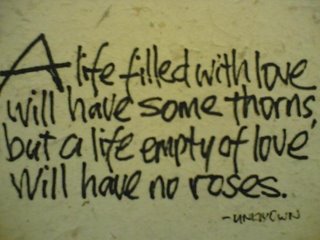 A life filled with love
will have some thorns,
but a life empty of love
will have no roses.
-UNKNOWN